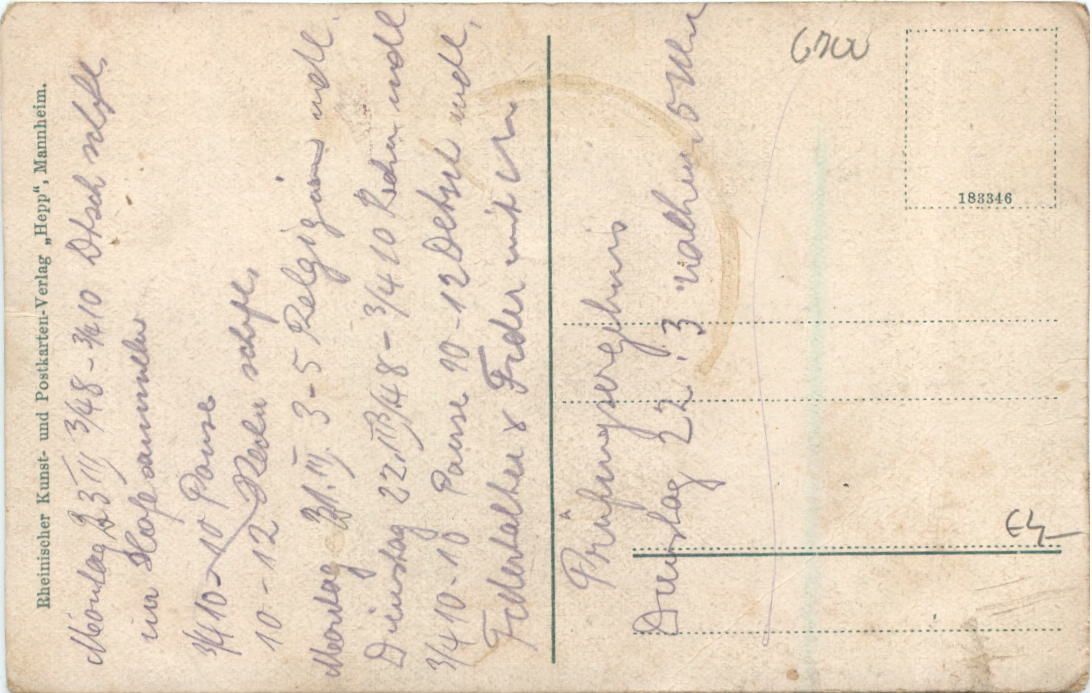 Rheinischer Kunst- und Postkarten-Verlag „Hepp“, Mannheim.
Montag III 3/4 8 - 3/4 10 Dtsch schftl.
im Hofe sammeln
3/4 10 - 10 Pause
10 - 12 Rechn schftl.
Montag III. 3-5 Relgigion mdl.
Dienstag 22. III 3/4 8 - 3/4 10 Rechn mdl
3/4 10 - 10 Pause 10 - 12 Detsch mdl,
Federhalter & Feder mit
Prüfungsergebnis
Dienstag 22. 3 nachm 5 Uhr
183346